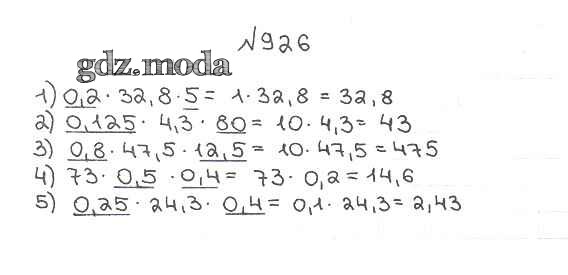 N926
gdz.moda
1) 0,2 · 32,8 · 5 = 1 · 32,8 = 32,8
2) 0,125 · 4,3 · 80 = 10 · 4,3 = 43
3) 0,8 · 47,5 · 12,5 = 10 · 47,5 = 475
4) 73 · 0,5 · 0,4 = 73 · 0,2 = 14,6
5) 0,25 · 24,3 · 0,4 = 0,1 · 24,3 = 2,43